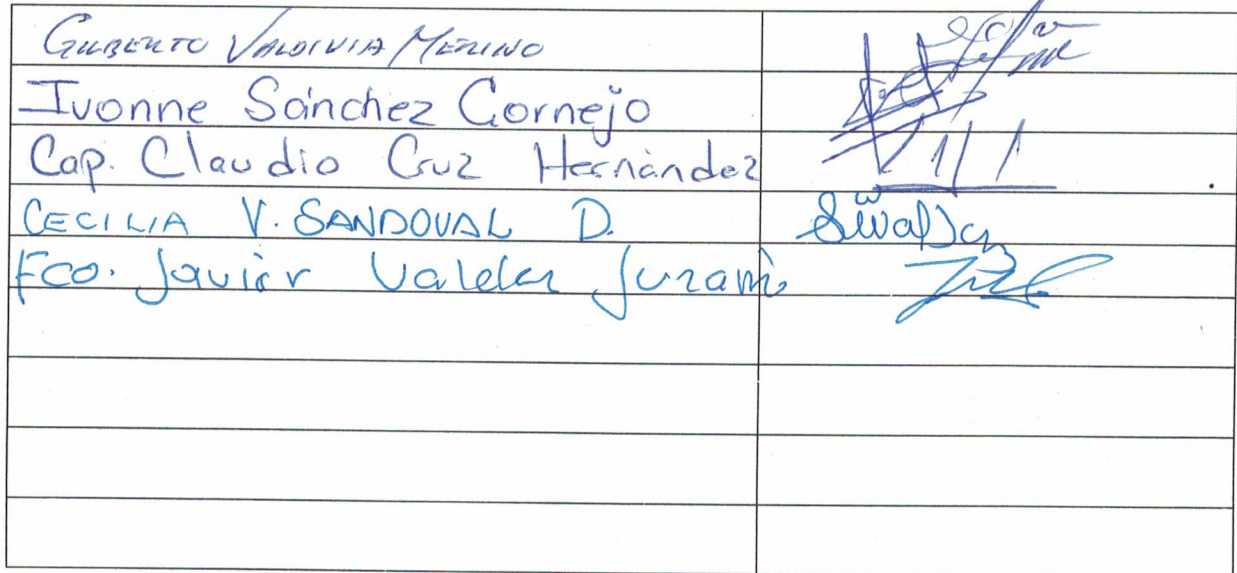 GILBERTO VALDIVIA MERINO
Ivonne Sánchez Cornejo
Cap. Claudio Cruz Hernández
CECILIA V. SANDOVAL D.
Fco. Javier